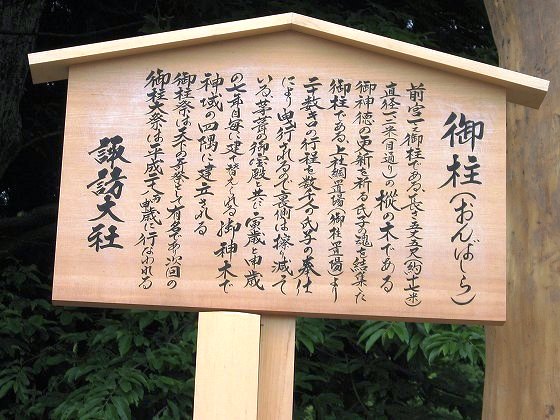 御柱(おんばしら)
前宮一之御柱である、長さ五丈五尺(約十七米)
直径一三米(目通り)の樅の木である
御神徳の更新を祈る氏子の魂を結集した
御柱である、上社綱置場(御柱置場)より
二十数キロの行程を数千の氏子の奉仕
により曳行されるので裏側は擦り減って
いる、茅葺の御宝殿と共に寅歳と申歳
の七年目毎に建て替えられる御神木で
神域の四隅に建立される
御柱祭は天下の大祭として有名であり次回の
御柱大祭は平成
歳に行なわれる
諏訪大社